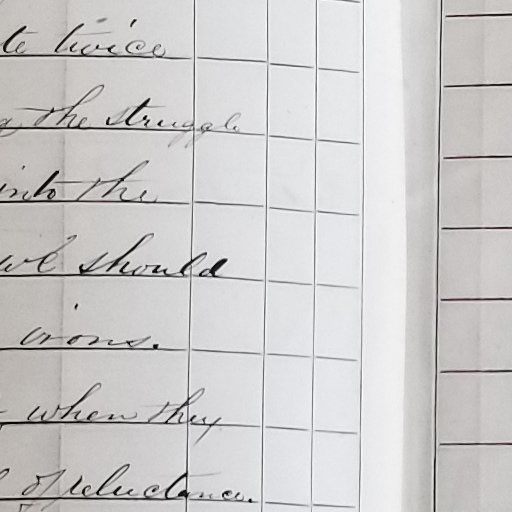 twice
the struggle
into the
we should
irons.
when they
of reluctance.